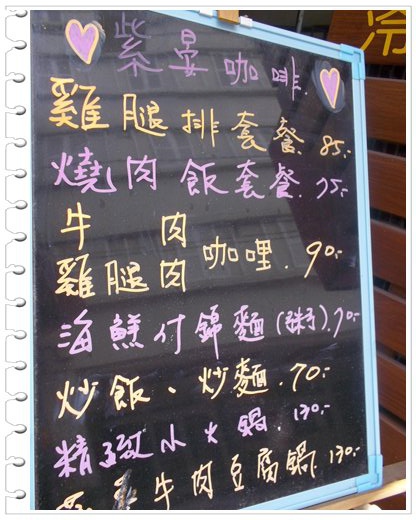 冷
紫晏咖啡
雞腿排套餐 85.-
燒肉飯套餐 75.-
牛肉
雞腿肉 咖哩. 90.-
海鮮什錦麵(粥)70.-
炒飯、炒麵.70.-
精緻小火鍋. 130.-
牛肉豆腐鍋. 130.-